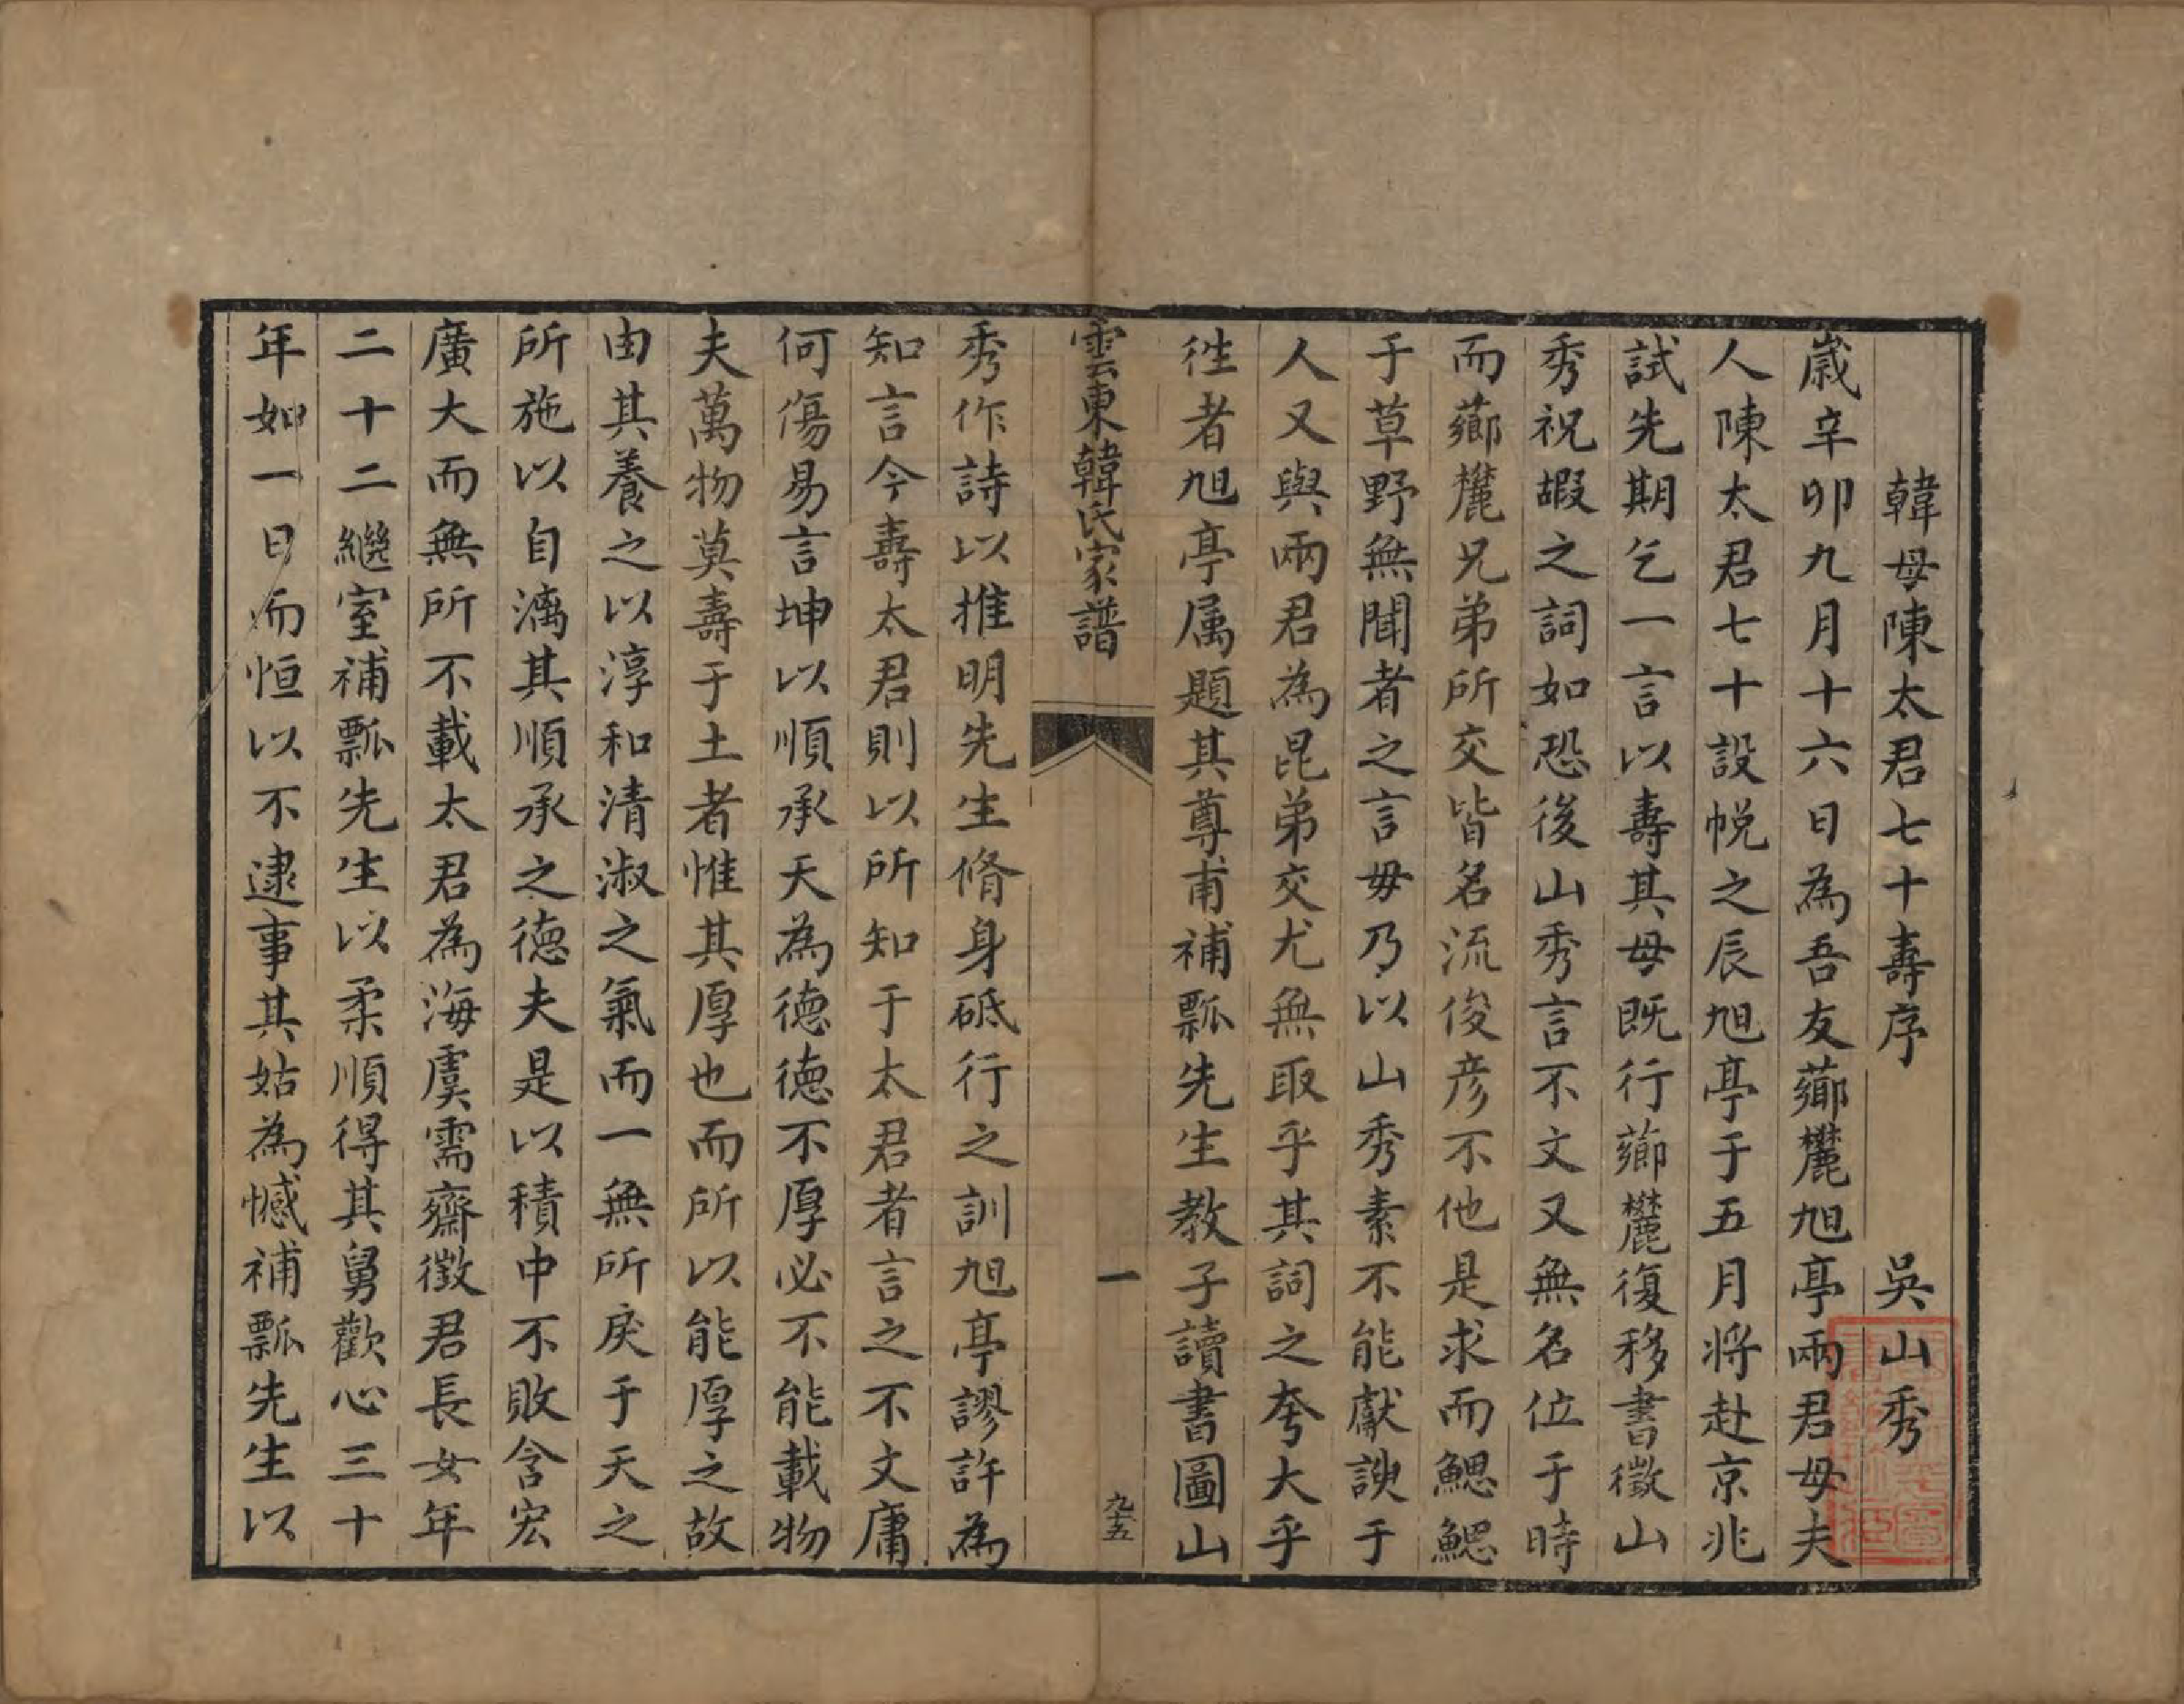 韓母陳太君七十壽序　吳山秀
歲辛卯九月十六日為吾友薌麓旭亭兩君母夫
人陳太君七十設帨之辰旭亭于五月將赴京兆
試先期乞一言以壽其母既行薌麓復移書徵山
秀祝嘏之詞如恐後山秀言不文又無名位于時
而薌麓兄弟所交皆名流俊彥不他是求而鰓鰓
于草野無聞者之言毋乃以山秀素不能獻諛于
人又與兩君為昆弟交尤無取乎其詞之夸大乎
徃者旭亭属題其尊甫補瓢先生教子讀書圖山
雲東韓氏家譜
一
九五
秀作詩以推明先生脩身砥行之訓旭亭謬許為
知言今壽太君則以所知于太君者言之不文庸
何傷易言坤以順承天為德德不厚必不能載物
夫萬物莫壽于土者惟其厚也而所以能厚之故
由其養之以淳和清淑之氣而一無所戾于天之
所施以自漓其順承之德夫是以積中不敗含宏
廣大而無所不載太君為海虞需齋徵君長女年
二十二繼室補瓢先生以柔順得其舅歡心三十
年如一日而恒以不逮事其姑為憾補瓢先生以